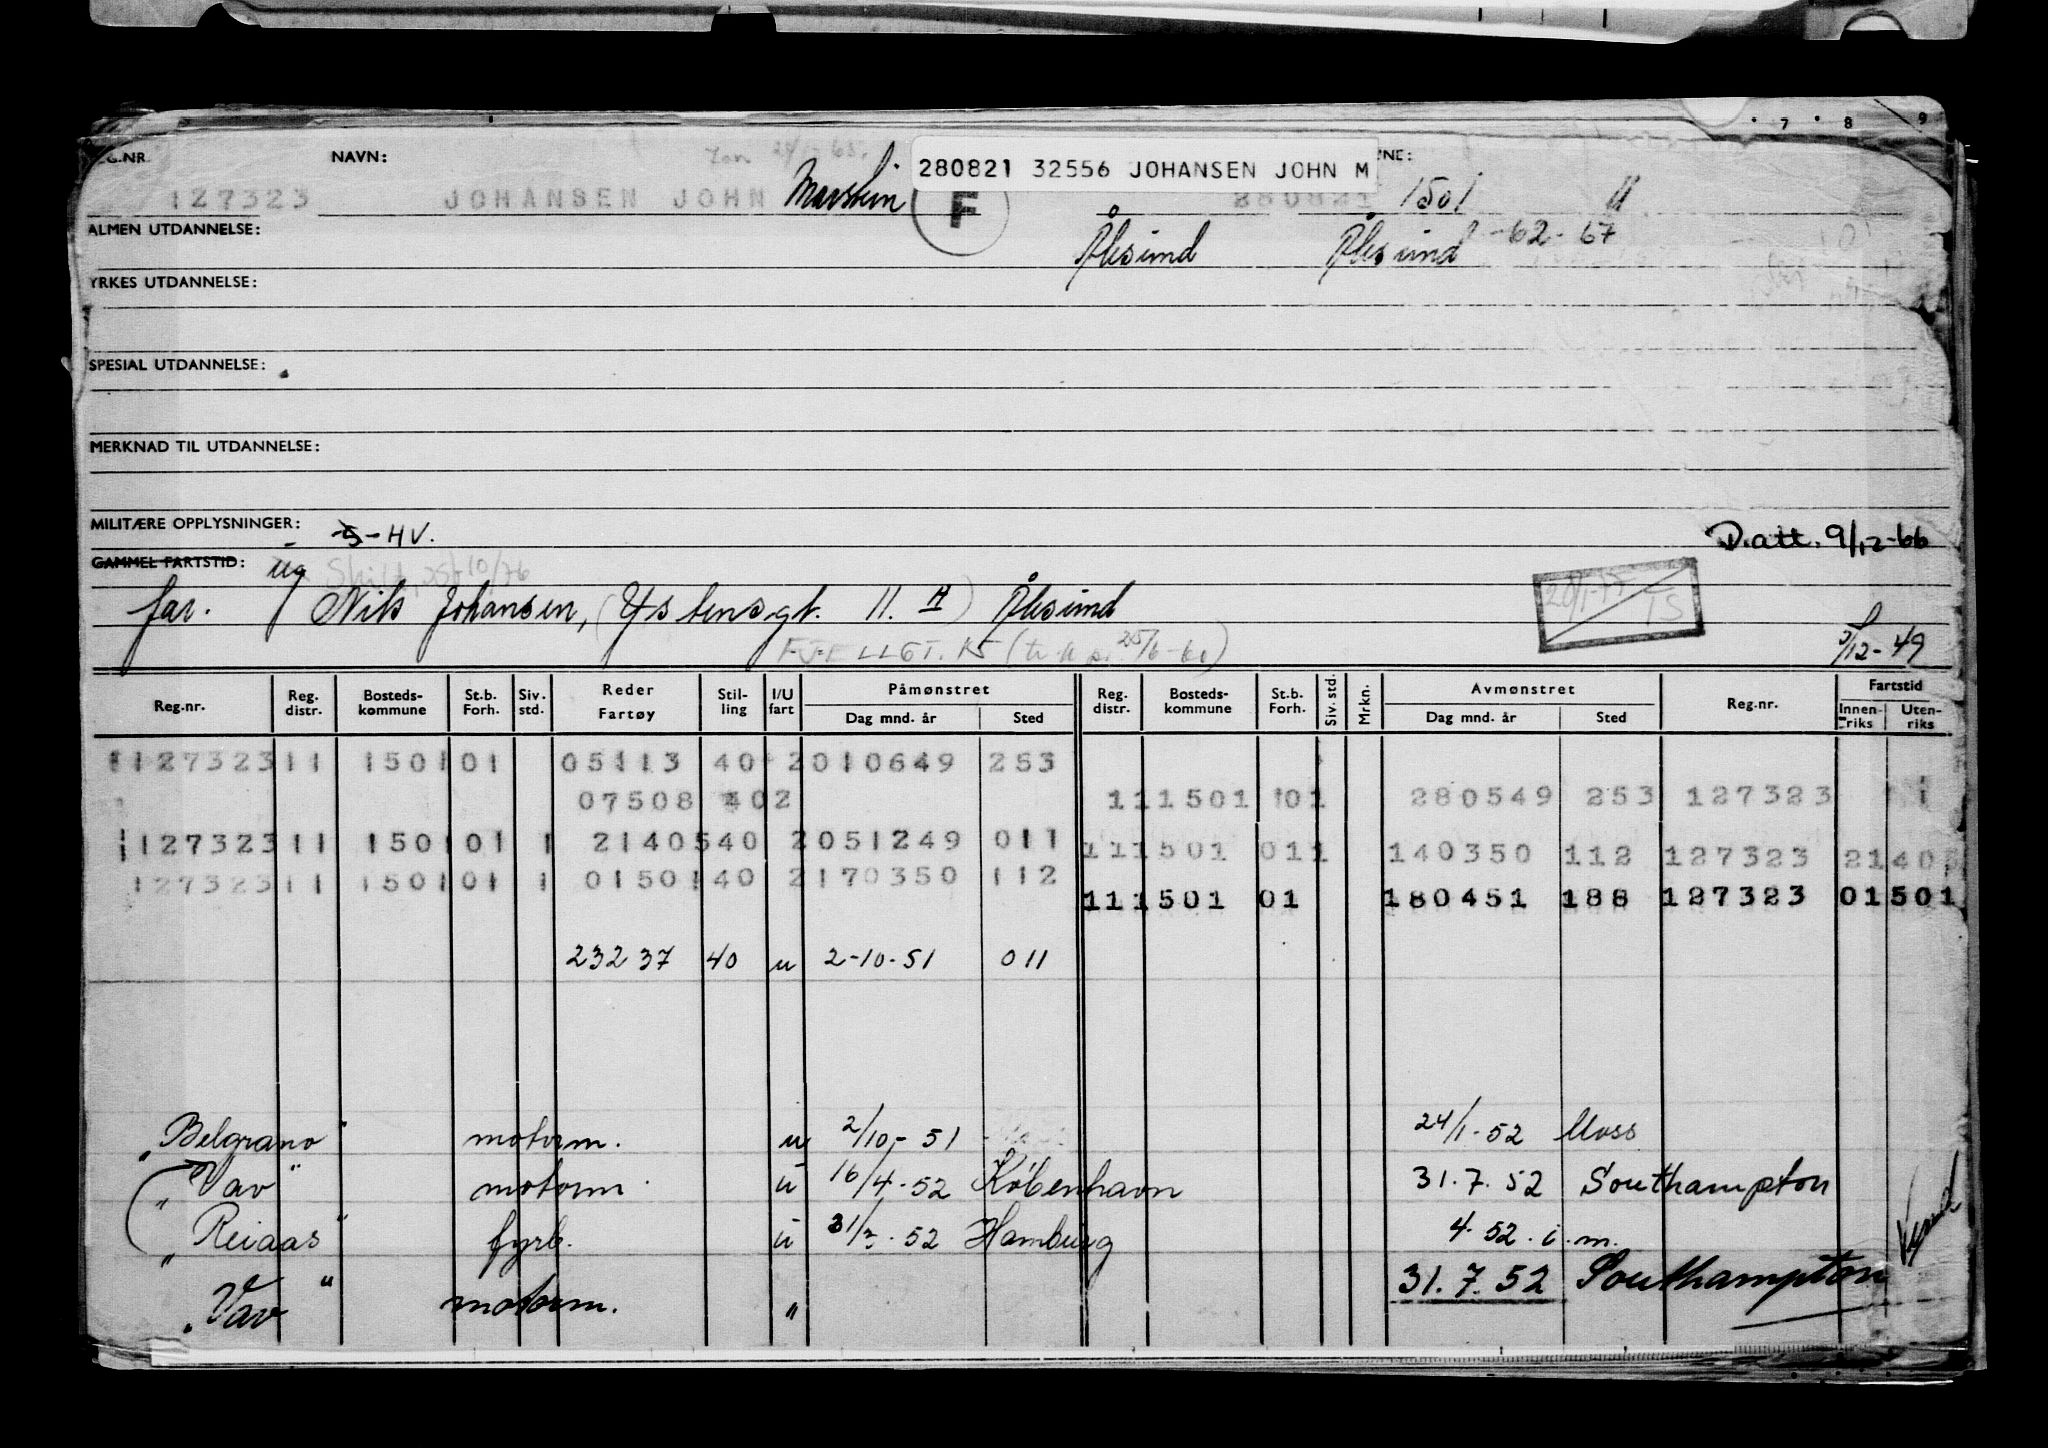 7 8 9
REG.NR. NAVN: 280821 32556 JOHANSEN JOHN M NE:
127323 JOHANSEN JOHN F 280821 1501 U
ALMEN UTDANNELSE: Ålesund Ålesund -62-67
YRKES UTDANNELSE:
SPESIAL UTDANNELSE:
MERKNAD TIL UTDANNELSE:
MILITÆRE OPPLYSNINGER: HV. D.att. 9/12-66
GAMMEL FARTSTID: ug
far. Nils Johansen, (Ystensgt. 11.A) Ålesund
FJELLGT. 15 /12-49
Reg.nr. Reg. distr. Bosteds- kommune St.b. Forh. Siv. std. Reder Fartøy Stil- ling I/U fart Påmønstret Dag mnd. år Sted Reg. distr. Bosteds- kommune St.b. Forh. Siv. std. Mrkn. Avmønstret Dag mnd. år Sted Reg.nr. Fartstid Innen- riks Uten- riks
127323 11 1501 01 05113 40 2 010649 253
07508 402 11 1501 01 280549 253 127323 1
127323 11 1501 01 1 21405 40 2 051249 011
11 1501 011 140350 112 127323 21405
127323 11 1501 01 1 01501 40 2 170350 112
11 1501 01 180451 188 127323 01501
23237 40 u 2-10-51 011
"Belgrano" motorm. u 2/10-51 24/1-52 Moss
"Vav" motorm. u 16/4-52 København 31.7.52 Southampton
"Reiaas" fyrb. u 31/3-52 Hamburg 4-52 i.m.
"Vav" motorm. " 31.7.52 Southampton